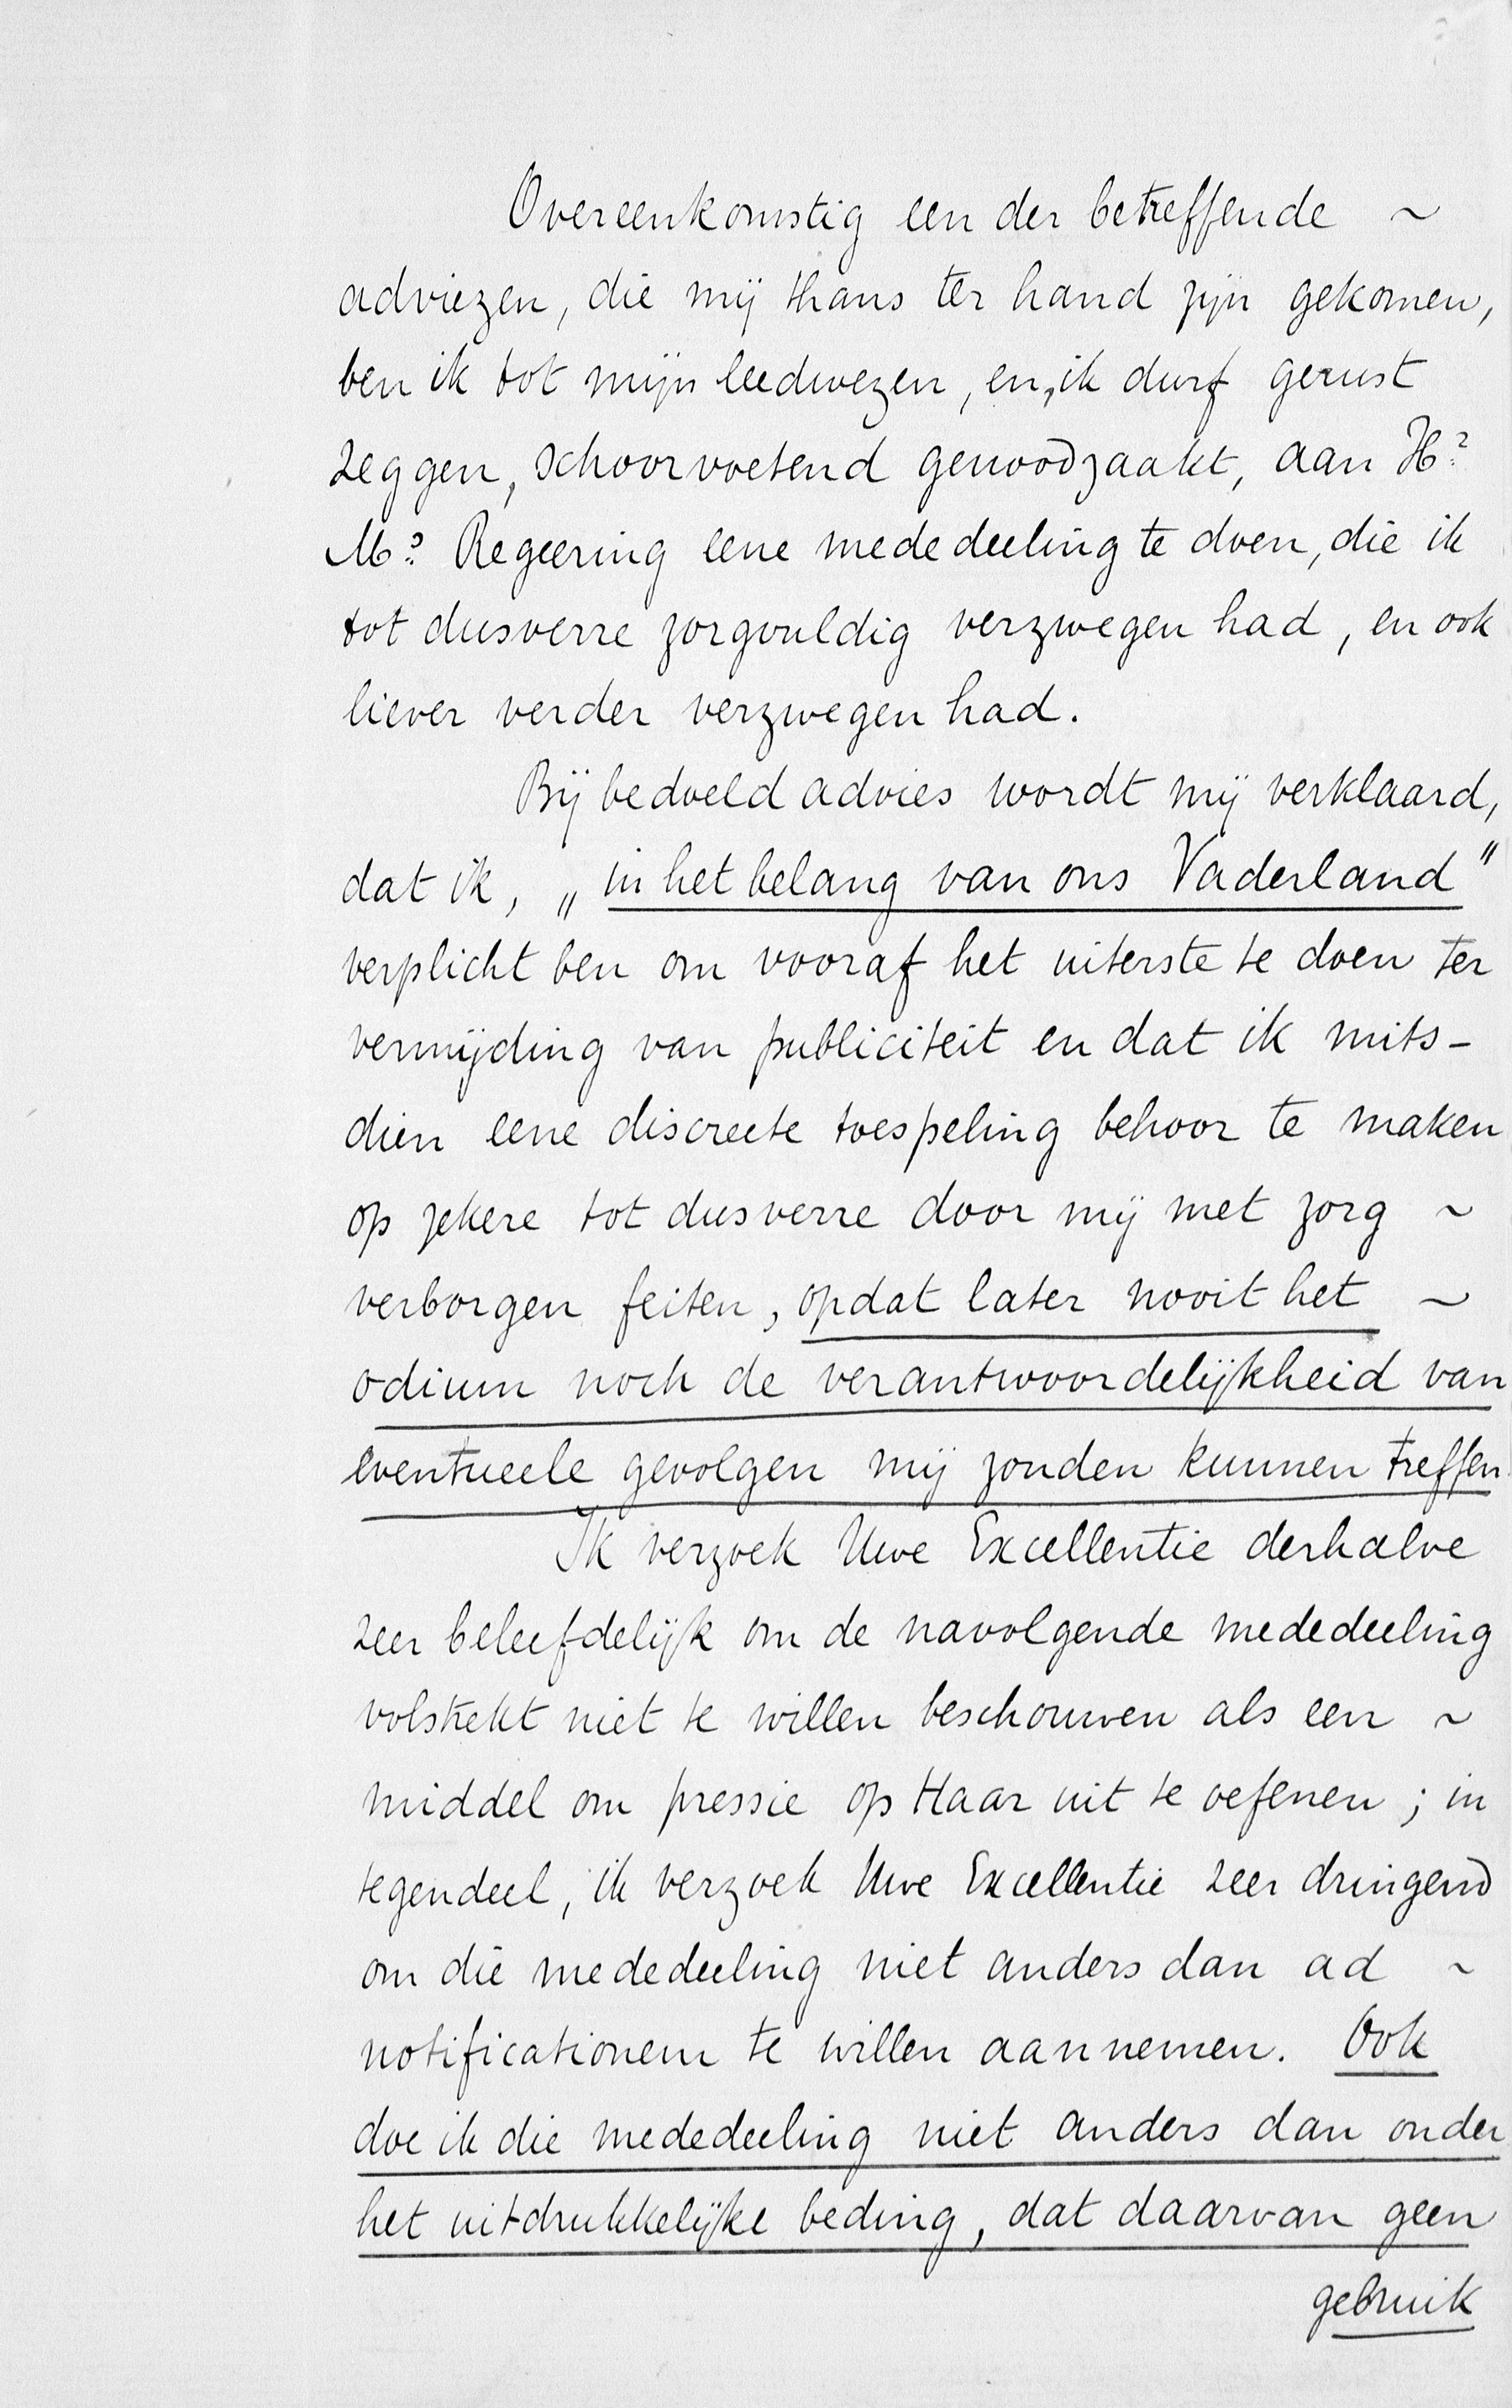 Overeenkomstig een der betreffende ~
adviezen, die mij thans ter hand zijn gekomen,
ben ik tot mijn leedwezen, en, ik durf gerust
zeggen, schoorvoetend genoodzaakt, aan H?
M? Regeering eene mededeeling te doen, die ik
tot dusverre zorgvuldig verzwegen had, en ook
liever verder verzwegen had.
Bij bedoeld advies wordt mij verklaard,
dat ik, „in het belang van ons Vaderland"
verplicht ben om vooraf het uiterste te doen ter
vermijding van publiciteit en dat ik mits-
dien eene discreete toespeling behoor te maken
op zekere tot dusverre door mij met zorg ~
verborgen feiten, opdat later nooit het ~
odium noch de verantwoordelijkheid van
eventueele gevolgen mij zouden kunnen treffen.
Ik verzoek Uwe Excellentie derhalve
zeer beleefdelijk om de navolgende mededeeling
volstrekt niet te willen beschouwen als een ~
middel om pressie op Haar uit te oefenen; in
tegendeel, ik verzoek Uwe Excellentie zeer dringend
om die mededeeling niet anders dan ad ~
notificationem te willen aannemen. Ook
doe ik die mededeeling niet anders dan onder
het uitdrukkelijke beding, dat daarvan geen
gebruik